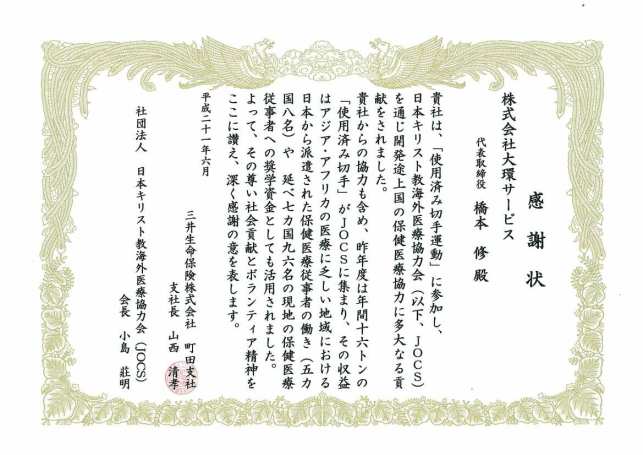 感謝状
株式会社大環サービス
代表取締役　橋本　修　殿
貴社は、「使用済み切手運動」に参加し、
日本キリスト教海外医療協力会（以下、JOCS）
を通じ開発途上国の保健医療協力に多大なる貢
献をされました。
貴社からの協力も含め、昨年度は年間十六トンの
「使用済み切手」がJOCSに集まり、その収益
はアジア・アフリカの医療に乏しい地域における
日本から派遣された保健医療従事者の働き（五カ
国八名）や　延べ七カ国九六名の現地の保健医療
従事者への奨学資金としても活用されました。
よって、その尊い社会貢献とボランティア精神を
ここに讃え、深く感謝の意を表します。
平成二十一年六月
三井生命保険株式会社　町田支社
支社長　山西　清孝
社団法人　日本キリスト教海外医療協力会（JOCS）
会長　小島　荘明